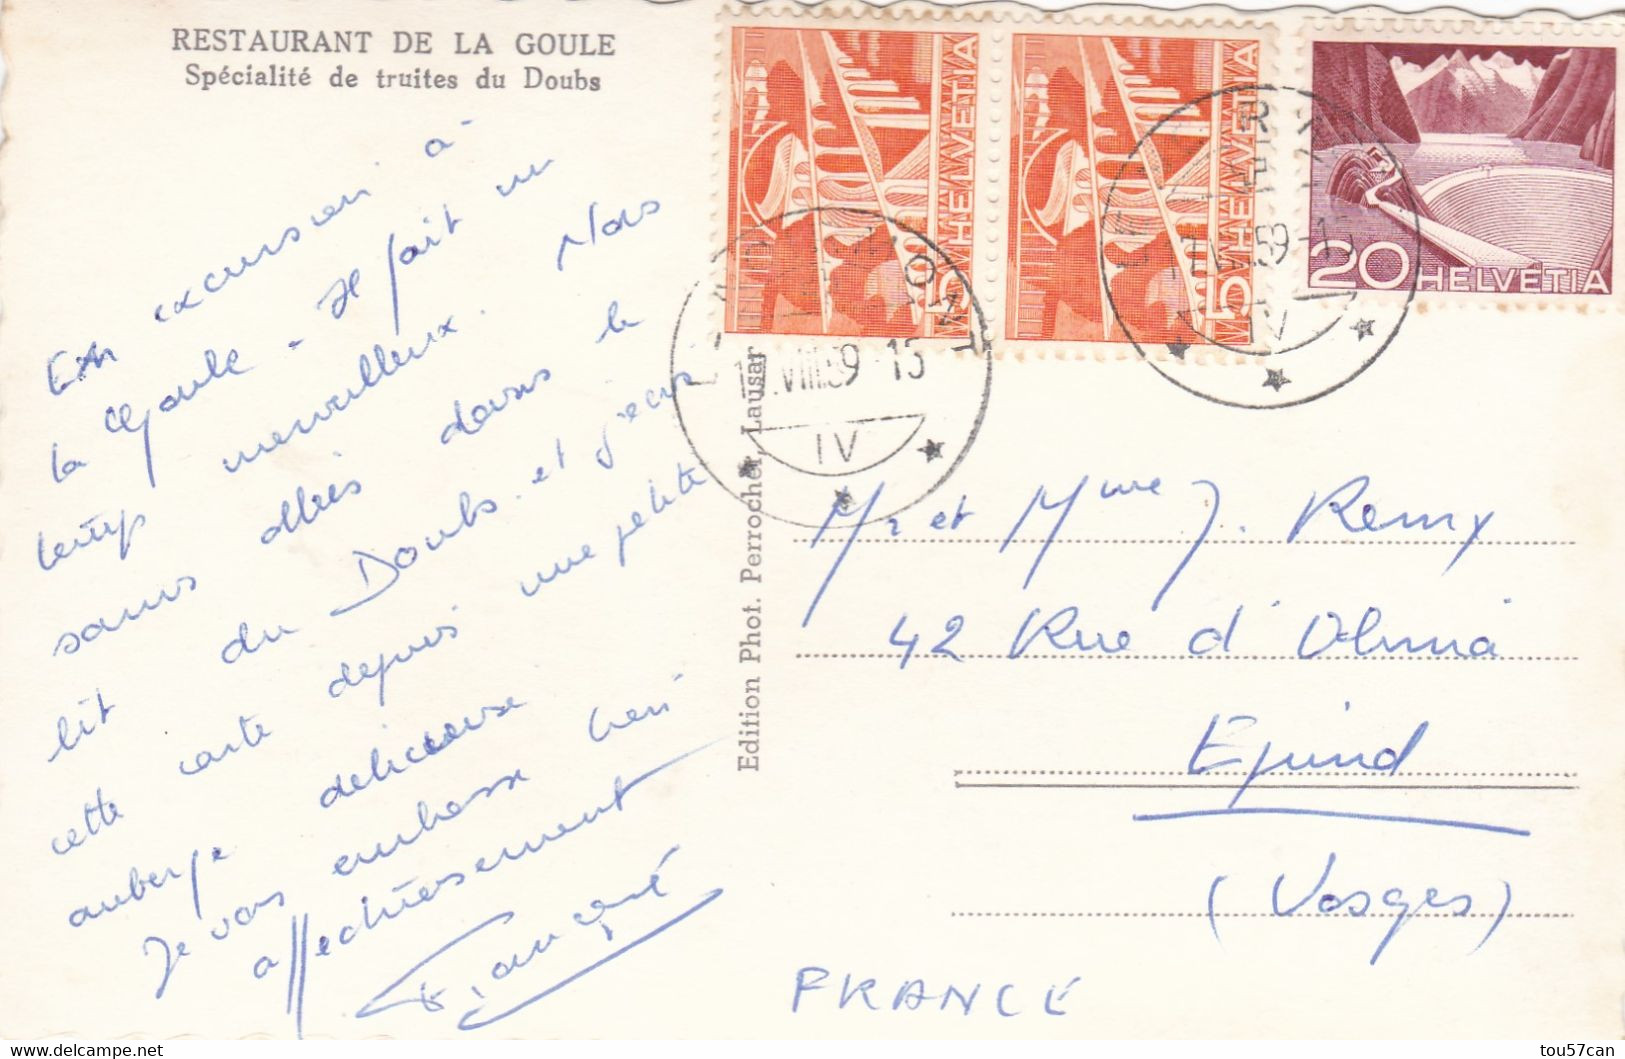 RESTAURANT DE LA GOULE
Spécialité de truites du Doubs
En excursion à
la Goule - Il fait un
temps merveilleux. Nous
sommes allés dans le
lit du Doubs et j'écris
cette carte depuis une petite
auberge délicieuse
Je vous embrasse bien
affectueusement
Edition Phot. Perrochet, Lausan
HELVETIA
5
HELVETIA
5
20 HELVETIA
VIII.59-13
IV
59-13
IV
Mr et Mme J. Remy
42 Rue d'Olima
Epinal
(Vosges)
FRANCE
www.delcampe.net
tou57can